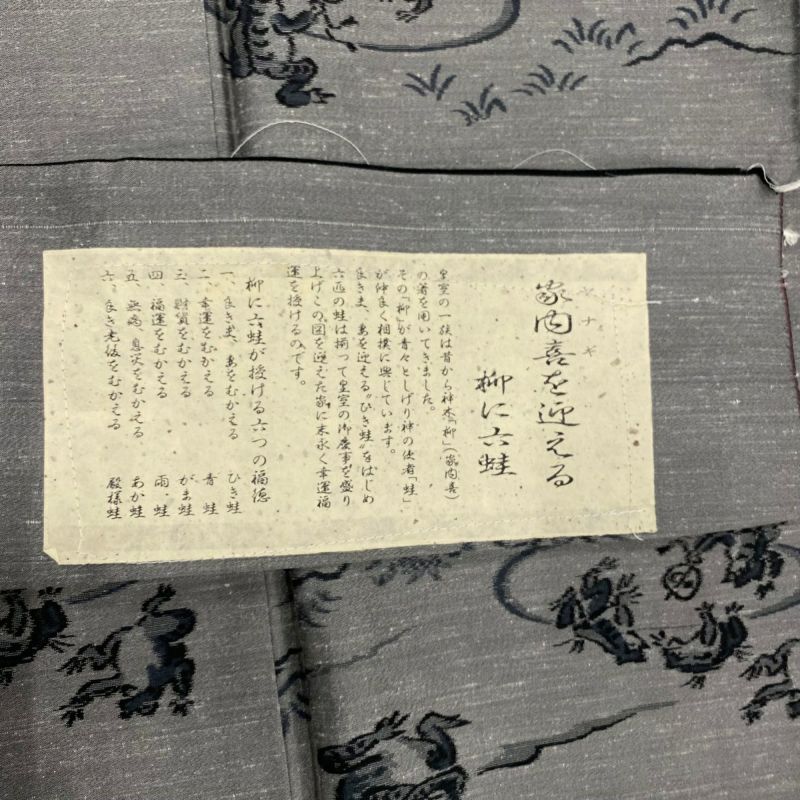 ヤナギ
家内喜を迎える
柳に六蛙
皇室の一族は昔から神木「柳」(家内喜)
の箸を用いてきました。
その「柳」が青々としげり神の使者「蛙」
が仲良く相撲に興じています。
良きま、あを迎える〝ひき蛙〟をはじめ
六匹の蛙は揃って皇室の御慶事を盛り
上げこの図を迎えた家に末永く幸運福
運を授けるのです。
柳に六蛙が授ける六つの福徳
一、良きま、あをむかえる ひき蛙
二、幸運をむかえる 青蛙
三、財貨をむかえる がま蛙
四、福運をむかえる 雨、蛙
五、無病息災をむかえる あか蛙
六、良き老後をむかえる 殿様蛙